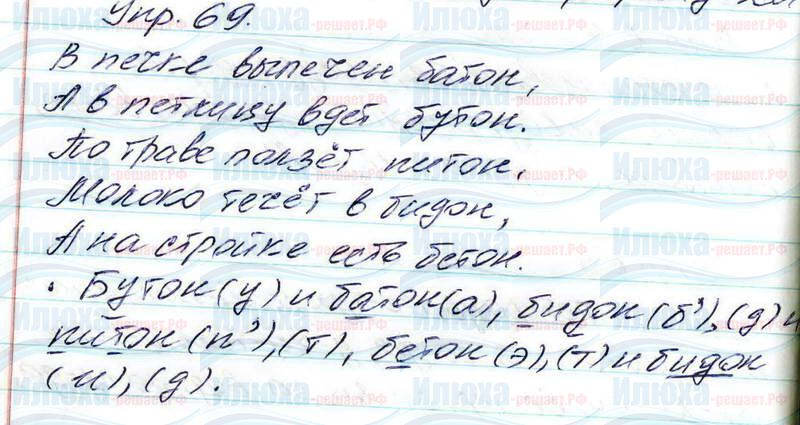 Упр. 69.
В печке выпечен батон,
А в петлицу вдет бутон.
По траве ползёт питон,
Молоко течёт в бидон,
А на стройке есть бетон.
• Бутон (у) и батон (а), бидон (б'), (д) и
питон (п'), (т), бетон (э), (т) и бидон
(и), (д).